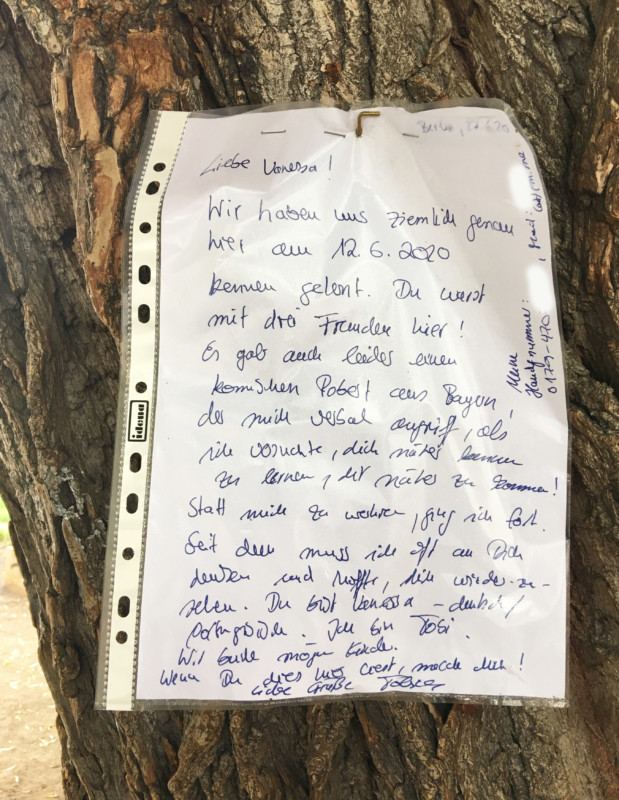 Berlin,
Liebe Vanessa!
Wir haben uns ziemlich genau
hier am 12.6.2020
kennen gelernt. Du warst
mit drei Freunden hier!
Es gab auch leider einen
komischen Robert aus Bayern,
der mich verbal angriff, als
ich versuchte, dich näher kennen
zu lernen, dir näher zu kommen!
Statt mich zu wehren, ging ich fort.
Seit dem muss ich oft an Dich
denken und hoffe, dich wieder-zu-
sehen. Du bist Vanessa - deutsch/
portugiesisch. Ich bin Tobi.
Wir beide mögen Kinder.
Wenn Du dies hier liest, melde dich!
Liebe Grüße
Meine
Handynummer:
0179-470
idena